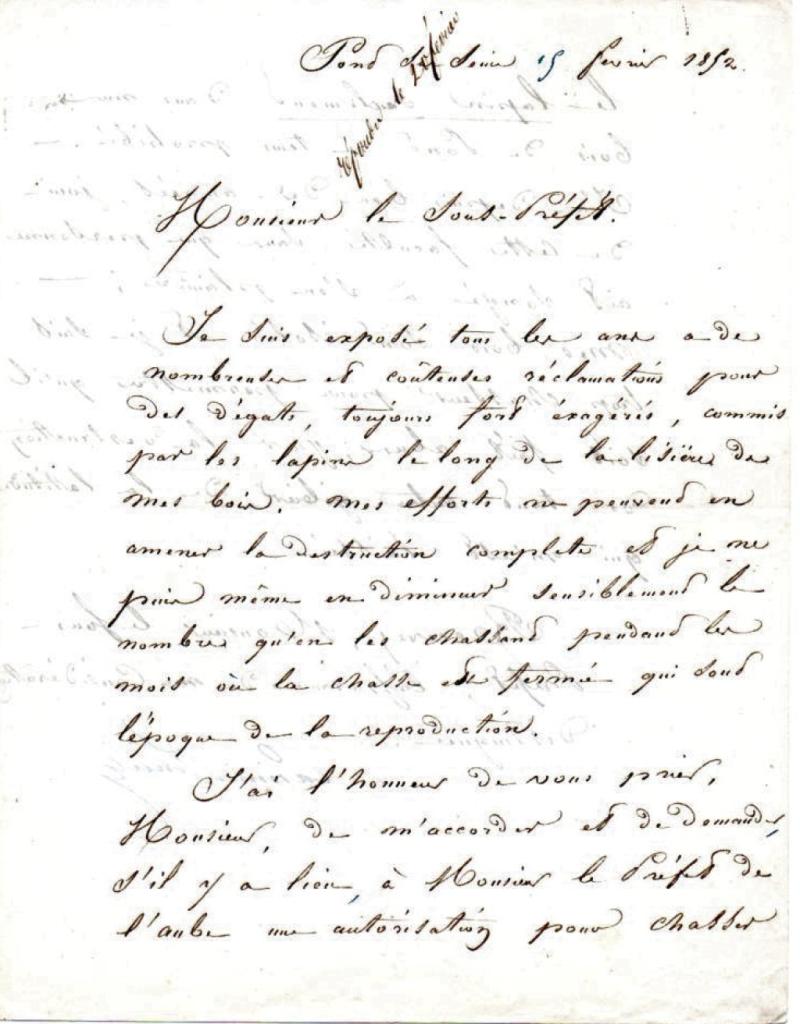 Pont s/ Seine 15 février 1852.
répondu le
Monsieur le Sous-Préfet.
Je suis exposé tous les ans a de
nombreuses et coûteuses réclamations pour
des dégats, toujours fort éxagérés, commis
par les lapins le long de la lisière de
mes bois. mes efforts ne peuvent en
amener la destruction complete et je ne
puis même en diminuer sensiblement le
nombre qu'en les chassant pendant les
mois où la chasse est fermée qui sont
l'époque de la reproduction.
J'ai l'honneur de vous prier,
Monsieur, de m'accorder et de demander,
s'il y a lieu, à Monsieur le Préfet de
l'aube une autorisation pour chasser